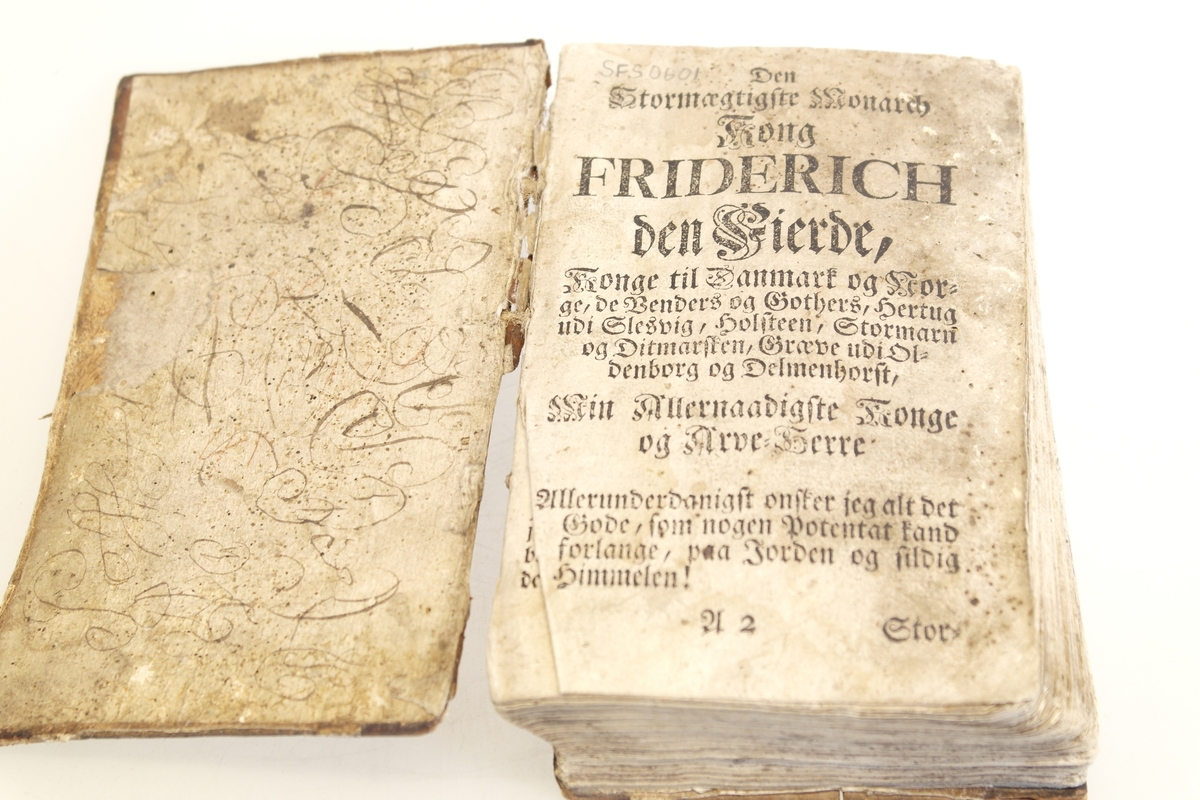 SFS 0601
Den
Stormægtigste Monarch
Kong
FRIDERICH
den Fierde,
Konge til Danmark og Nor-
ge, de Venders og Gothers, Hertug
udi Slesvig, Holsteen, Stormarn
og Ditmarsken, Græve udi Ol-
denborg og Delmenhorst,
Min Allernaadigste Konge
og Arve-Herre
Allerunderdanigst onsker jeg alt det
Gode, som nogen Potentat kand
forlange, paa Jorden og sildig
de Himmelen!
A 2
Stor-